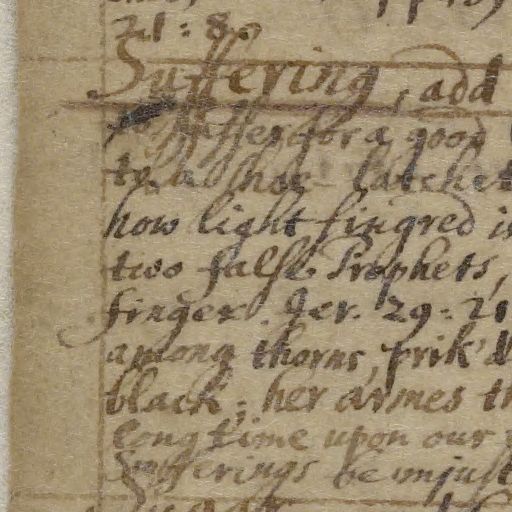 21 : 8.
Suffering, add
to suffer for a good
to a shoe-latchet
how light fingred is
two false Prophets,
finger. Jer. 29: 21
among thorns, prik'd
black; her armes th
long time upon our
Sufferings be unjust